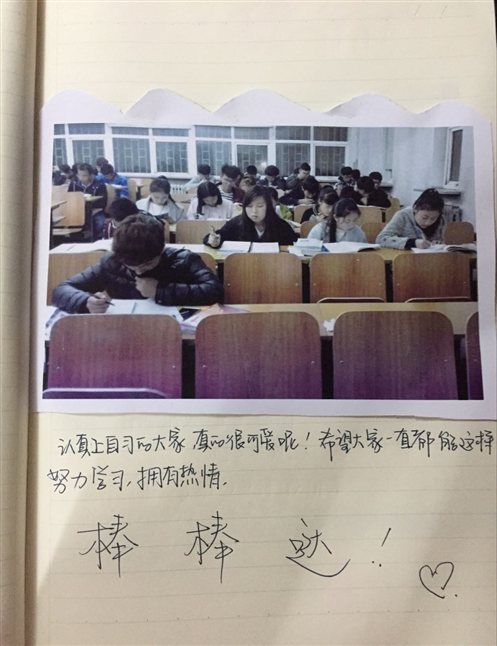 认真上自习的大家真的很可爱呢！希望大家一直都能这样
努力学习，拥有热情．
棒棒哒！